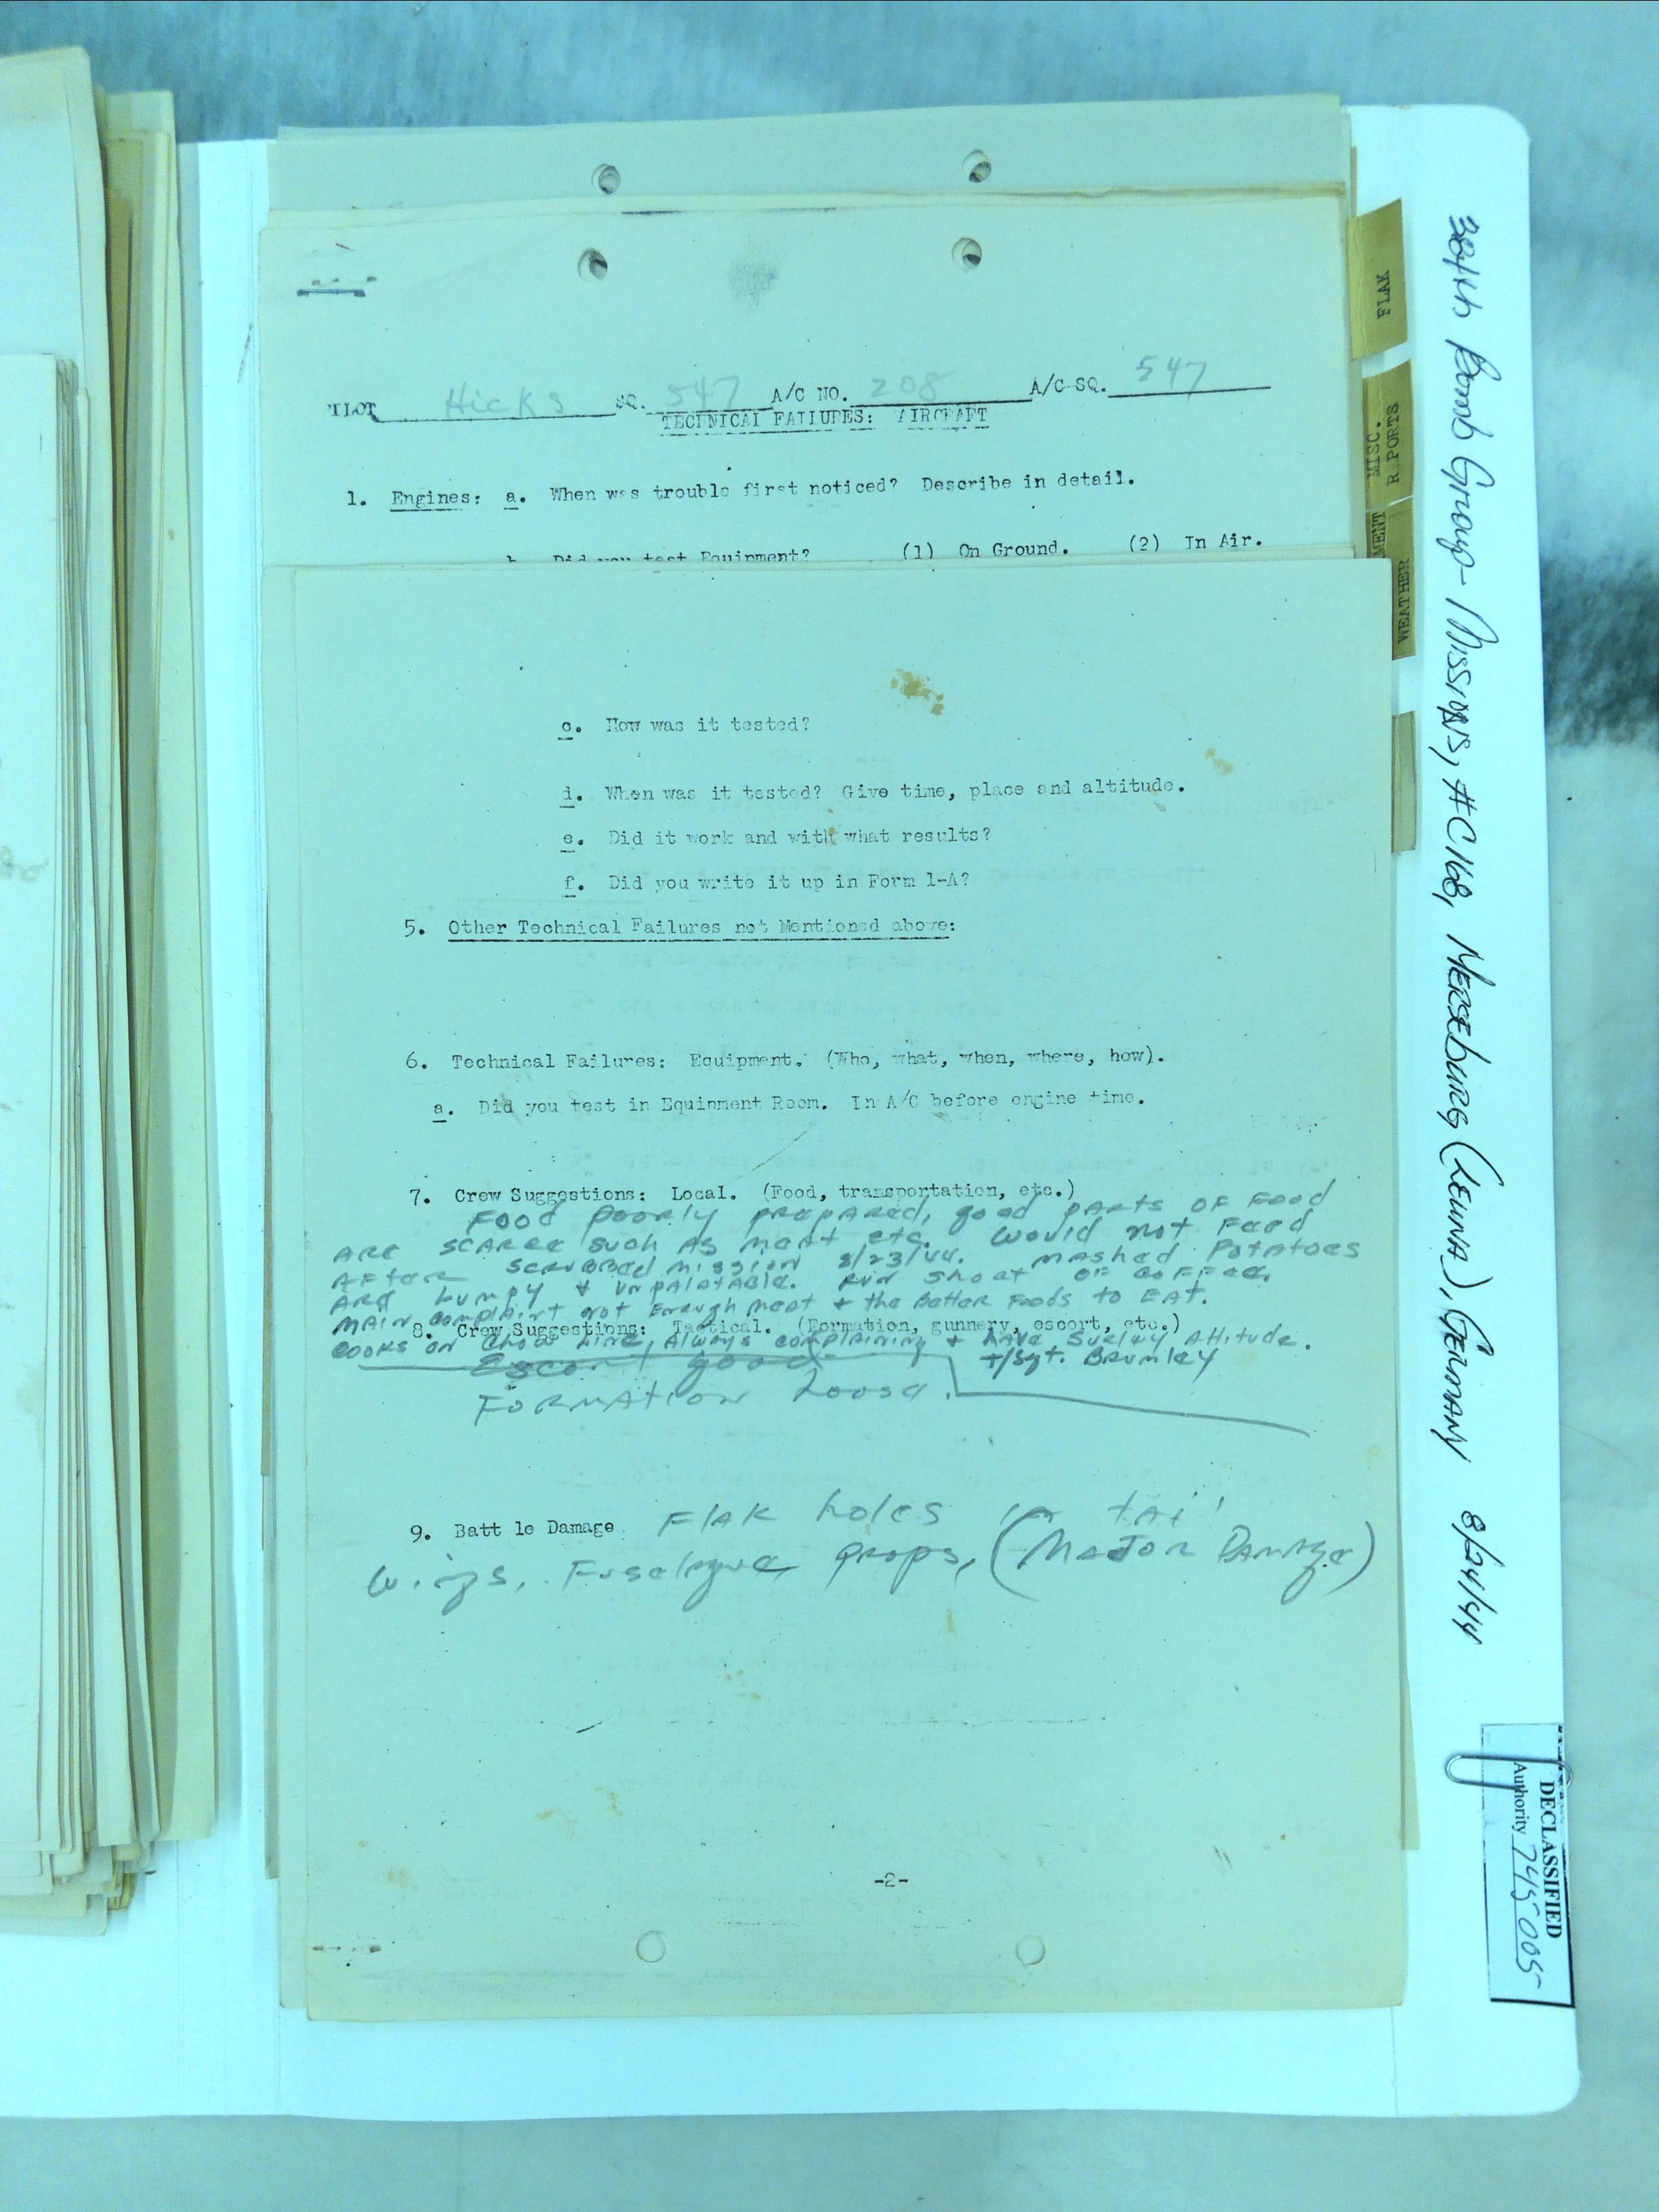 PILOT Hicks SQ. 547 A/C NO. 208 A/C SQ. 547
TECHNICAL FAILURES: AIRCRAFT
1. Engines: a. When was trouble first noticed? Describe in detail.
b. Did you test Equipment? (1) On Ground. (2) In Air.
c. How was it tested?
d. When was it tested? Give time, place and altitude.
e. Did it work and with what results?
f. Did you write it up in Form 1-A?
5. Other Technical Failures not Mentioned above:
6. Technical Failures: Equipment. (Who, what, when, where, how).
a. Did you test in Equipment Room. In A/C before engine time.
7. Crew Suggestions: Local. (Food, transportation, etc.)
Food poorly prepared, good parts of food
are scarce such as meat etc. Would not feed
after scrubbed mission 8/23/44. Mashed Potatoes
are lumpy & unpalatable. Run short of coffee.
Main complaint not enough meat & the better foods to eat.
8. Crew Suggestions: Tactical. (Formation, gunnery, escort, etc.)
Cooks on chow line, always complaining & have surley attitude.
T/Sgt. Brumley
Escort good
Formation loose.
9. Batt le Damage Flak holes in tail
wings, Fuselage props, (Major Damage)
-2-
FLAK
MISC.
R PORTS
MENT
WEATHER
384th Bomb Group - Missions, #C168, Merseburg (Leuna), Germany 8/24/44
DECLASSIFIED
Authority 745005